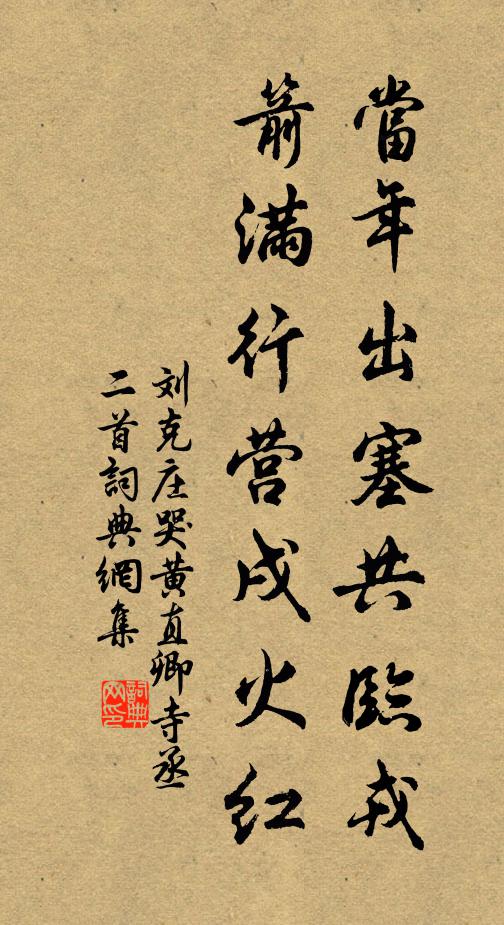 當年出塞共臨戎
箭滿行营戍火红
刘克庄哭黄直卿寺丞
二首詞典網集
詞典网印